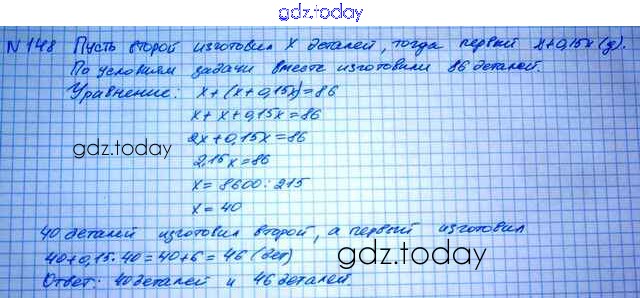 gdz.today
N148 Пусть второй изготовил x деталей, тогда первый x+0,15x (д).
По условиям задачи вместе изготовили 86 деталей.
Уравнение: x + (x + 0,15x) = 86
x + x + 0,15x = 86
2x + 0,15x = 86
gdz.today
2,15x = 86
x = 8600 : 215
x = 40
40 деталей изготовил второй, а первый изготовил
40 + 0,15 · 40 = 40 + 6 = 46 (дет)
gdz.today
Ответ: 40 деталей и 46 деталей.